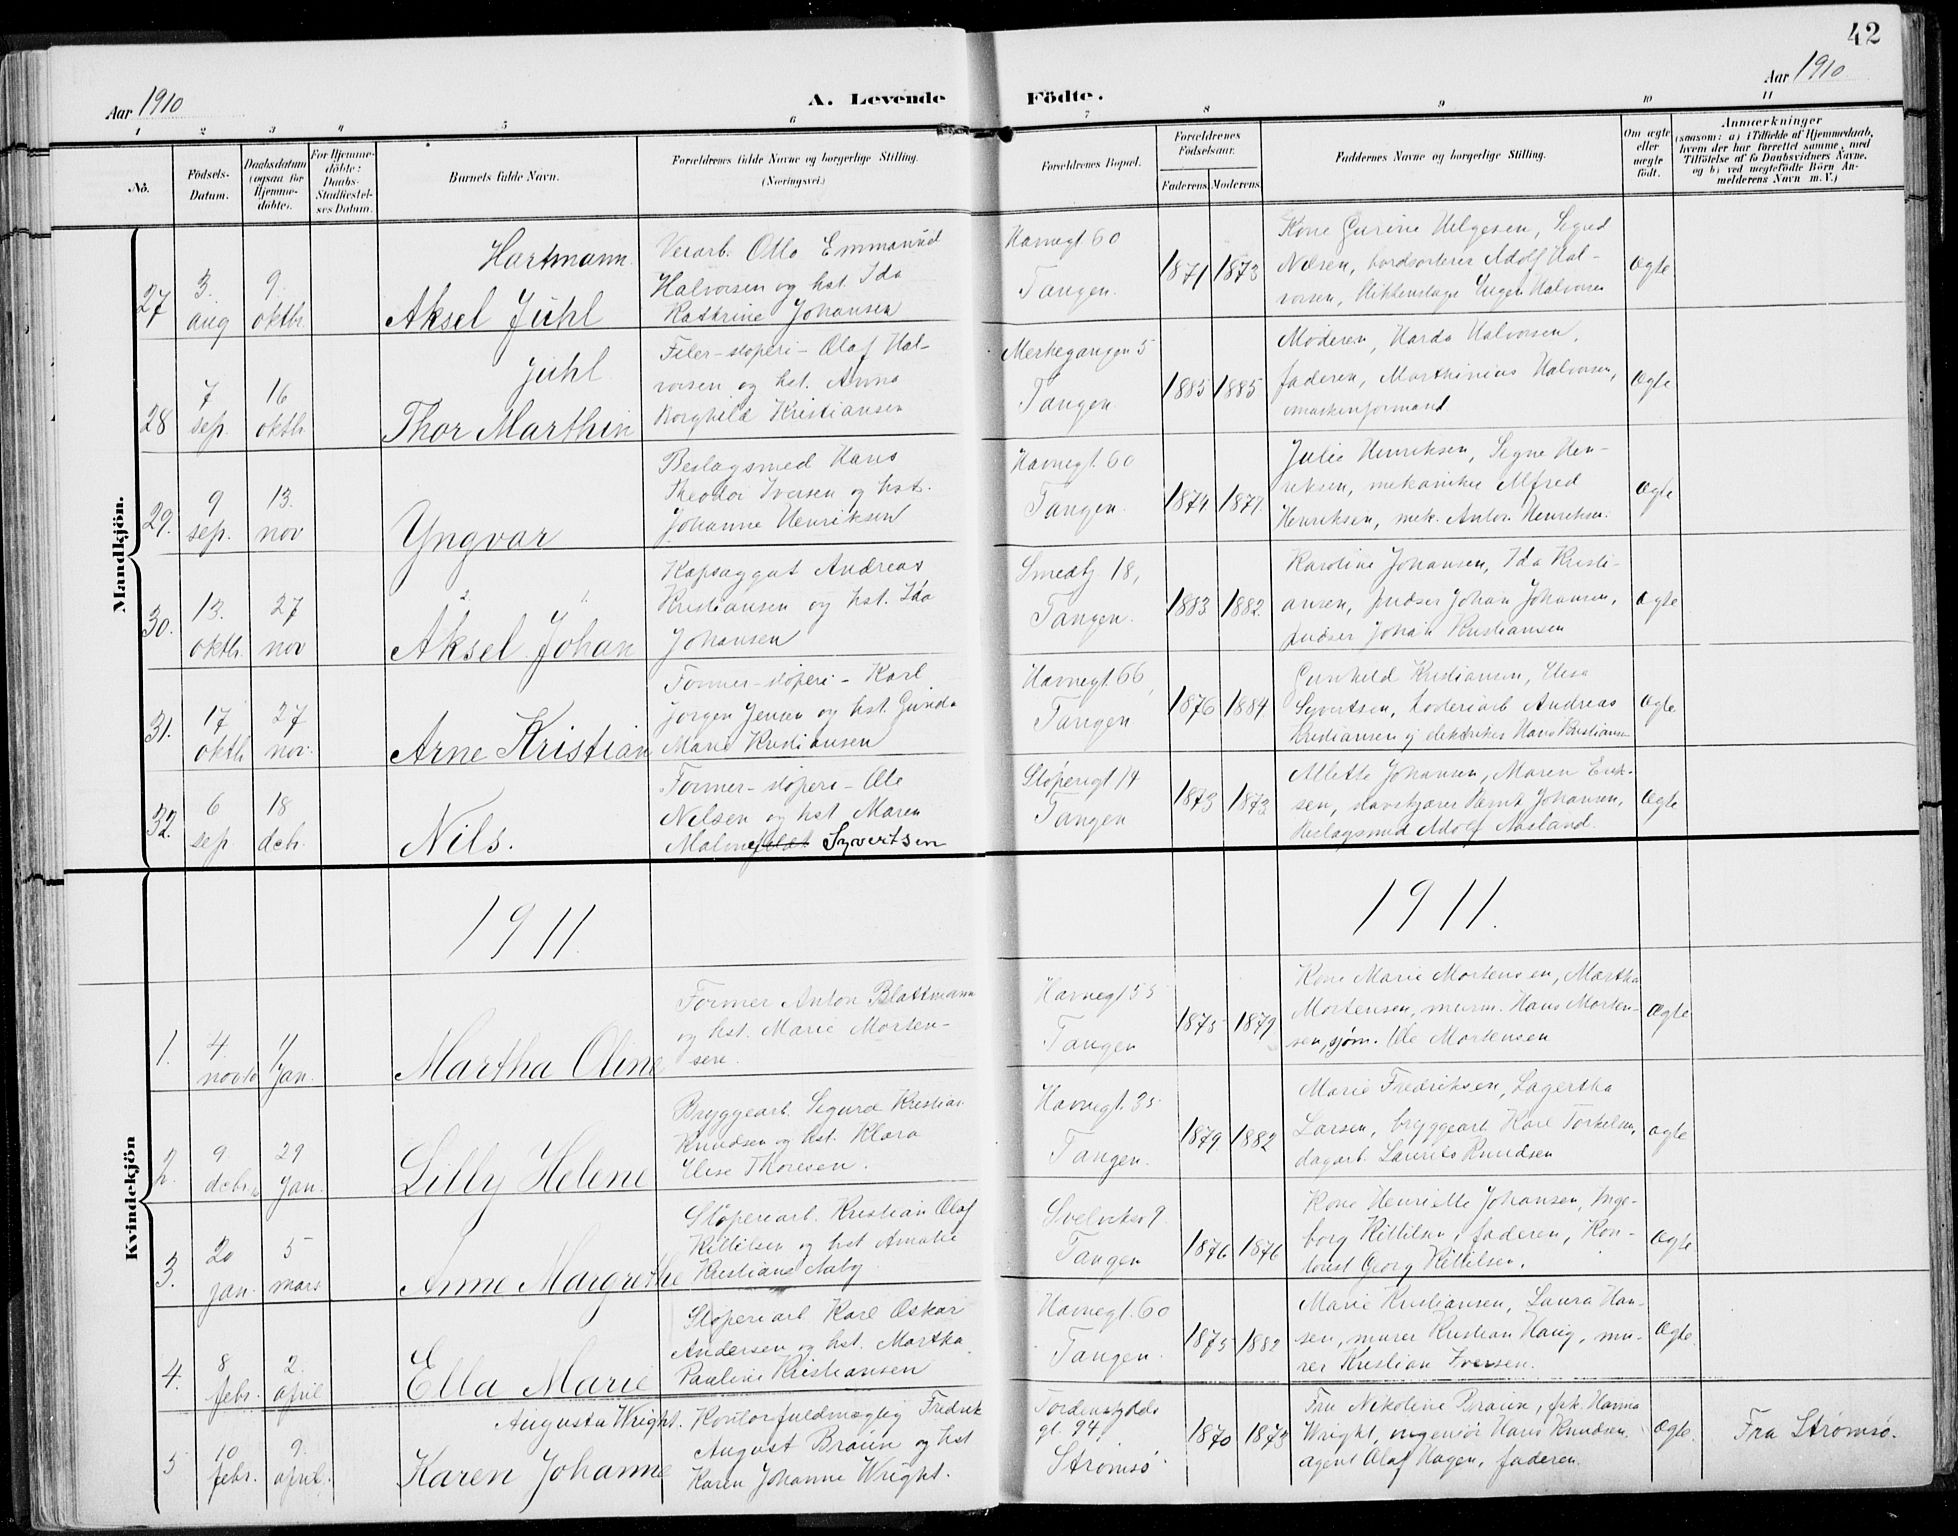 42
Aar 1910
A. Levende Födte.
Aar 1910
1 2 3 4 5 6 7 8 9 10 11
No.
Födsels-Datum.
Daabsdatum (ogsaa for Hjemmedöbte).
For Hjemmedöbte: Daabs-Stadfæstelses Datum.
Barnets fulde Navn.
Forældrenes fulde Navne og borgerlige Stilling. (Næringsvei.)
Forældrenes Bopæl.
Forældrenes Födselsaar.
Faderens. Moderens.
Faddernes Navne og borgerlige Stilling.
Om ægte eller uægte födt.
Anmærkninger
(saasom: a) i Tilfælde af Hjemmedaab, hvem der har forrettet samme, med Tilföielse af to Daabsvidners Navne, og b) ved uægtefödte Börn Anmelderens Navn m. V.)
Mandkjön.
27 3. aug 9. oktbr.
Hartmann
Aksel Juhl
Verarb. Otto Emmanuel
Halvorsen og hst. Ida
Kathrine Johansen
Havnegt 60
Tangen.
1871 1873
Kone Gurine Helgesen, Sigrid
Nilsen, bordsorterer Adolf Hal-
vorsen, Eugen Halvorsen
Ægte
28 7 sep. 16 oktbr.
Juhl
Thor Marthin
Filer-støperi- Olaf Hal-
vorsen og hst. Anna
Borghild Kristiansen
Merkegangen 5
Tangen.
1885 1885
Moderen, Harda Halvorsen,
faderen, Marthinius Halvorsen,
maskinformand
Ægte
29. 9 sep. 13. nov
Yngvar
Beslagsmed Hans
Theodor Iversen og hst.
Johanne Henriksen
Havnegt. 60
Tangen.
1874 1877.
Julie Henriksen, Signe Hen-
riksen, mekaniker Alfred
Henriksen, mek. Anton Henriksen.
Ægte
30. 13. oktbr. 27 nov
2. 1.
Aksel Johan
Kapsaggat Andreas
Kristiansen og hst. Ida
Johansen
Smedbg 18,
Tangen.
1883 1882
Karoline Johansen, Ida Kristi-
ansen, pudser Johan Johansen,
pudser Johan Kristiansen
Ægte
31. 17 oktbr 27 nov.
Arne Kristian
Former-støperi- Karl
Jørgen Jensen og hst. Gunda
Marie Kristiansen
Havnegt. 66,
Tangen
1876 1884
Gunhild Kristiansen, Elisa
Syvertsen, Andreas
Kristiansen, elektriker Hans Kristiansen
Ægte
32. 6 sep 18 debr.
Nils.
Former-støperi- Ole
Nilsen og hst Maren
Maline Syvertsen
Støperigt 14
Tangen
1873 1873
Allette Johansen, Maren Erik-
sen, stavskjærer Bernt Johansen,
Beslagsmed Adolf Aasland.
Ægte
1911
1911.
Kvindekjön
1. 4. novbr 1/ Jan.
Martha Oline
Former Anton Blattmann
og hst. Marie Morten-
sen.
Havnegt 55
Tangen
1875 1879
Kone Marie Mortensen, Martha
Mortensen, murm. Hans Morten-
sen, sjøm. Ole Mortensen
Ægte
2. 9 debr. 29 Jan.
Lilly Helene
Bryggearb. Sigurd Kristian
Knudsen og hst. Klara
Elise Thoresen.
Havnegt. 35
Tangen.
1879 1882
Marie Fredriksen, Lagertha
Larsen, bryggearb Kare Torkelsen,
dagarb. Laurits Knudsen
ægte
3. 20 jan. 5 mars
Anne Margrethe
Støperiarb. Kristian Olaf
Kittilsen og hst Amalie
Kristiane Aaby
Svelvikv 9.
Tangen
1876 1876
Kone Henriette Johansen, Inge-
borg Kittilsen, faderen, Kon-
torist Georg Kittilsen.
Ægte
4. 8 febr. 2. april
Ella Marie
Støperiarb Karl Oskar
Andersen og hst. Martha
Pauline Kristiansen
Havnegt. 60
Tangen.
1875 1882
Marie Kristiansen, Laura Han-
sen, murer Kristian Haug, mu-
rer Kristian Iversen.
Ægte.
5 10 febr. 9. april.
Augusta Wright.
Karen Johanne
Kontorfuldmægtig Fredrik
August Braun og hst
Karen Johanne Wright.
Tordenskjolds
gt. 94,
Strømsø
1870 1873
Fru Nikoline Braun, frk. Hanna
Wright, ingeniør Hans Knudsen.
agent Olaf Hagen, faderen.
Ægte.
Fra Strømsø.